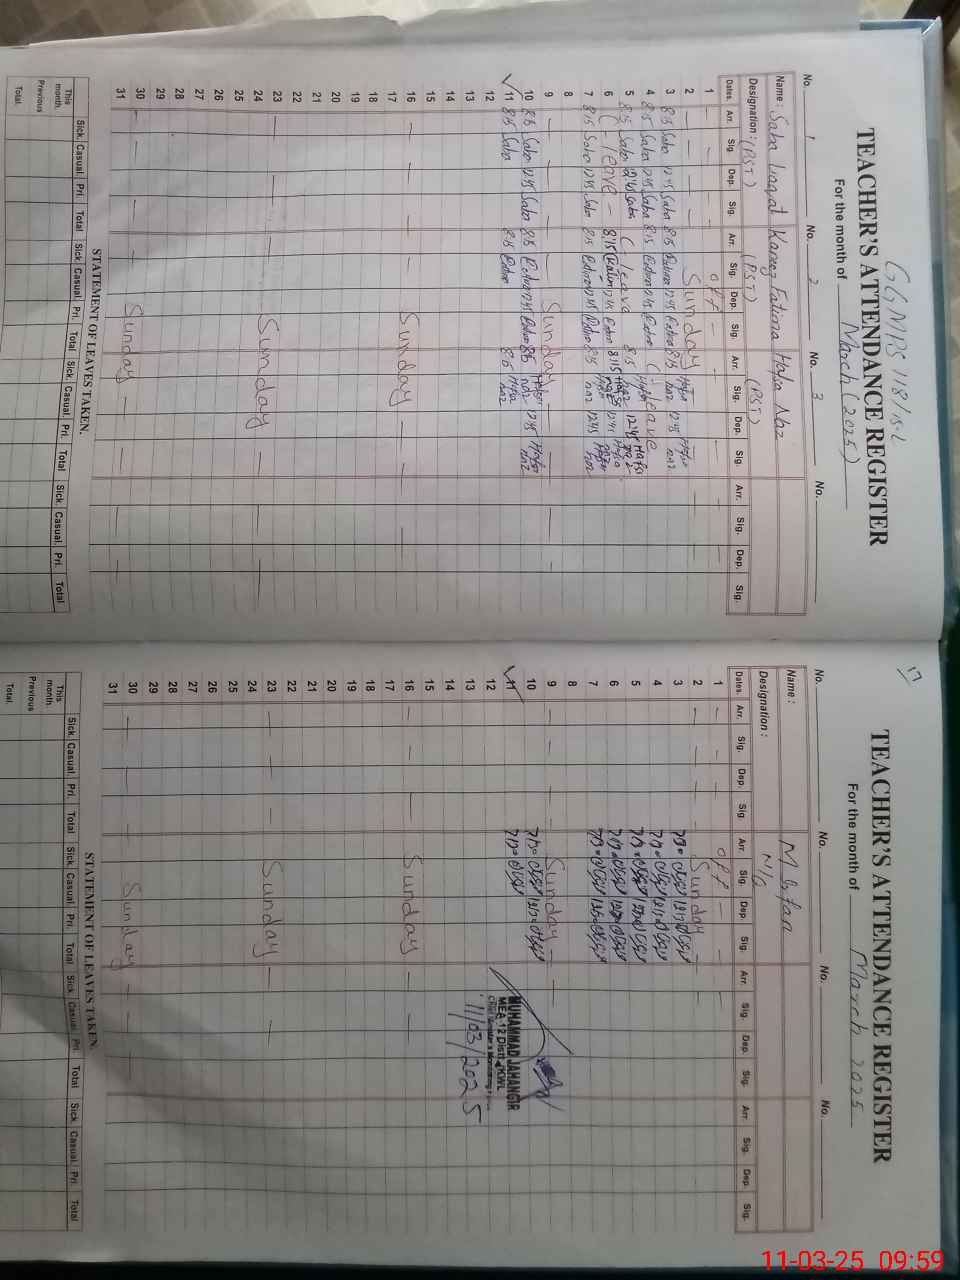 GGMPS 118/15-L
TEACHER'S ATTENDANCE REGISTER
For the month of March (2025)
No. 1 No. 2 No. 3 No.
Name: Saba Liaqat Kaneez Fatima Hafsa Naz
Designation: (PST) (PST) (PST)
Dates. Arr. Sig. Dep. Sig. Arr. Sig. Dep. Sig. Arr. Sig. Dep. Sig. Arr. Sig. Dep. Sig.
1 — — off —
2 — — Sunday
3 8:15 Saba 12:45 Saba 8:15 12:45 8:15 Hafsa naz 12:45 Hafsa naz
4 8:15 Saba 12:45 Saba 8:15 12:45 ( Leave
5 8:15 Saba 12:45 Saba ( Leave 8:15 Hafsa naz 12:45 Hafsa naz
6 ( – leave – 8:15 12:45 8:15 Hafsa naz 12:45 Hafsa naz
7 8:15 Saba 12:45 Saba 8:15 12:45 8:15 Hafsa naz 12:45 Hafsa naz
8
9 — — Sunday — —
10 8:15 Saba 12:45 Saba 8:15 12:45 8:15 Hafsa naz 12:45 Hafsa naz
11 8:15 Saba 8:15 8:15 Hafsa naz
12
13
14
15
16 — Sunday — —
17
18
19
20
21
22
23 — — Sunday — —
24
25
26
27
28
29
30 — — Sunday — —
31
STATEMENT OF LEAVES TAKEN.
Sick. Casual. Pri. Total Sick. Casual. Pri. Total Sick. Casual. Pri. Total Sick. Casual. Pri. Total
This month.
Previous
Total.
17
TEACHER'S ATTENDANCE REGISTER
For the month of March 2025
No. No. No. No.
Name: M Irfan
Designation: N/Q
Dates. Arr. Sig. Dep. Sig. Arr. Sig. Dep. Sig. Arr. Sig. Dep. Sig. Arr. Sig. Dep. Sig.
1 — — off —
2 — — Sunday
3
4
5
6
7
8
9 — — Sunday — —
10
11
12
13
14
15
16 — — Sunday — —
17
18
19
20
21
22
23 — — Sunday — —
24
25
26
27
28
29
30 — — Sunday — —
31
MUHAMMAD JAHANGIR
MEA-12 Distt. KWL
Chief Minister's Monitoring Force
11/03/2025
STATEMENT OF LEAVES TAKEN.
Sick. Casual. Pri. Total Sick. Casual. Pri. Total Sick. Casual. Pri. Total Sick. Casual. Pri. Total
This month.
Previous
Total.
11-03-25 09:59